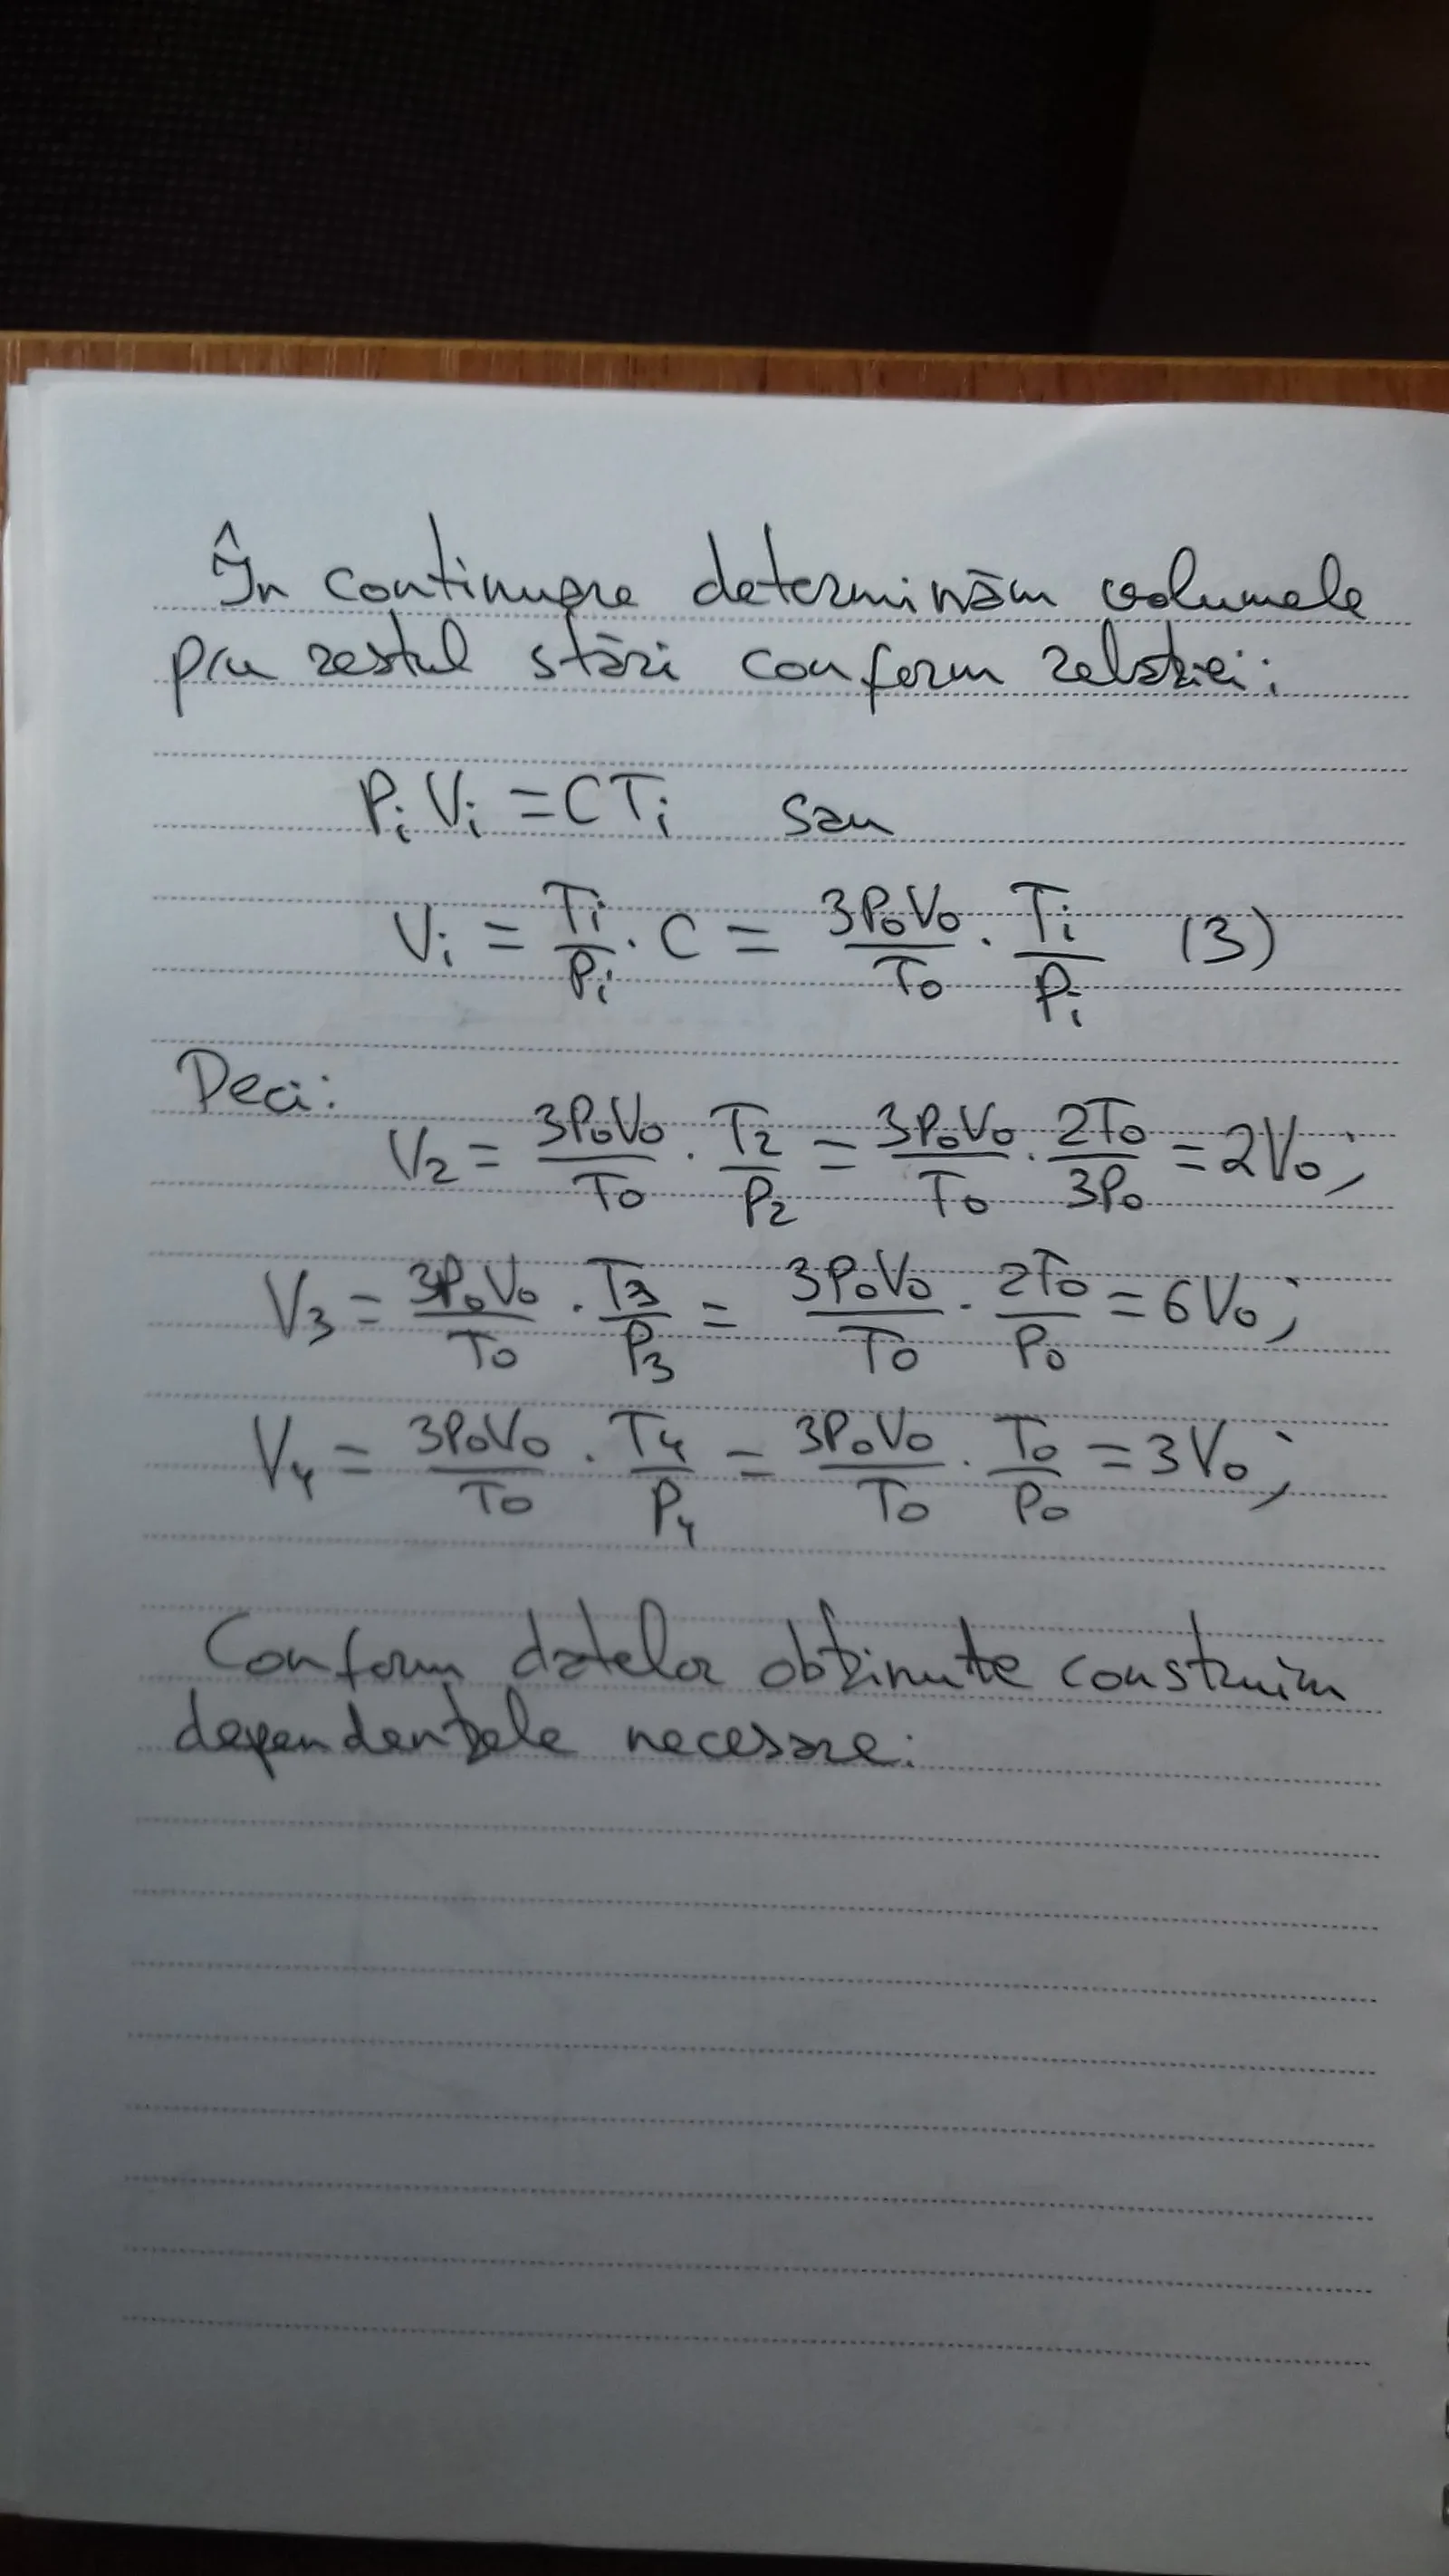 În continuare determinăm volumele
p/u restul stări conform relației:
PᵢVᵢ = CTᵢ sau
Vᵢ = Tᵢ/Pᵢ · C = 3P₀V₀/T₀ · Tᵢ/Pᵢ (3)
Deci:
V₂ = 3P₀V₀/T₀ · T₂/P₂ = 3P₀V₀/T₀ · 2T₀/3P₀ = 2V₀;
V₃ = 3P₀V₀/T₀ · T₃/P₃ = 3P₀V₀/T₀ · 2T₀/P₀ = 6V₀;
V₄ = 3P₀V₀/T₀ · T₄/P₄ = 3P₀V₀/T₀ · T₀/P₀ = 3V₀;
Conform datelor obținute construim
dependențele necesare: